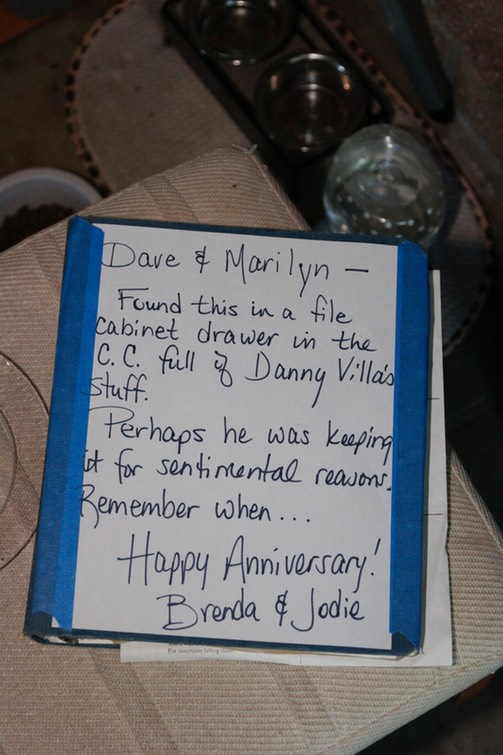 Dave & Marilyn —
Found this in a file
cabinet drawer in the
C.C. full of Danny Villa's
stuff.
Perhaps he was keeping
it for sentimental reasons.
Remember when...
Happy Anniversary!
Brenda & Jodie